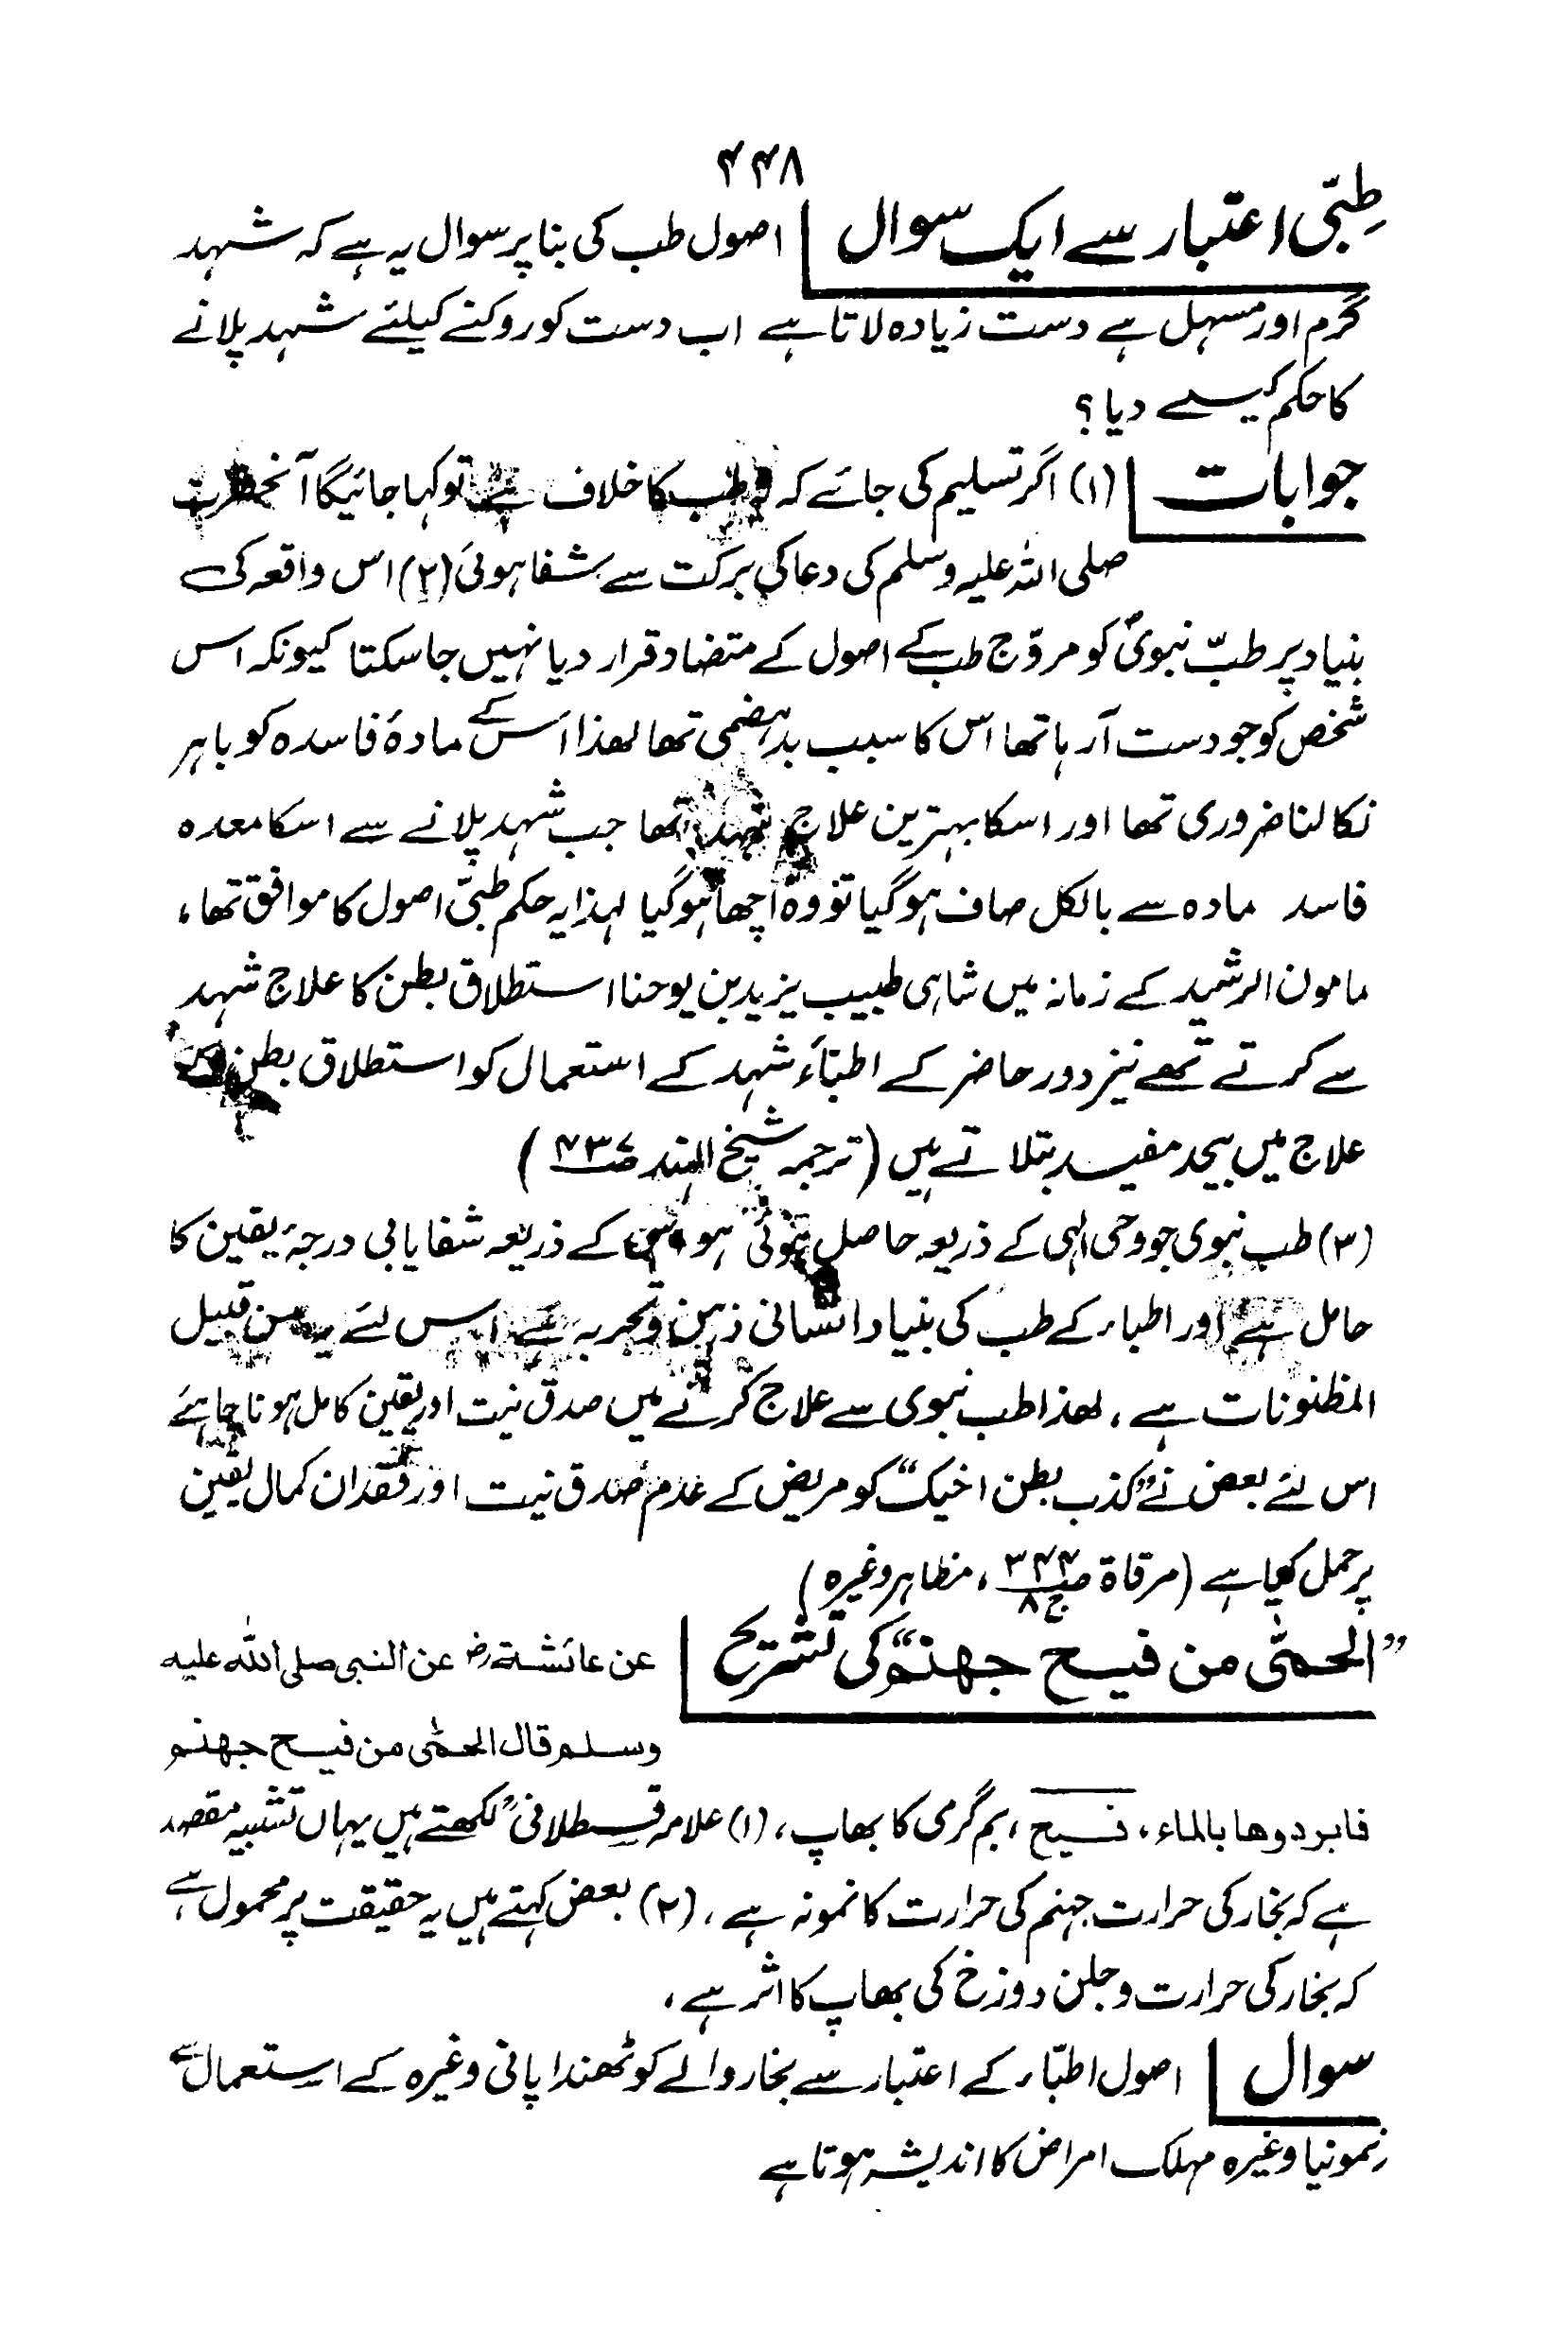 ۴۴۸
طبّی اعتبار سے ایک سوال اصول طب کی بنا پر سوال یہ ہے کہ شہد
گرم اور مسہل ہے دست زیادہ لاتا ہے اب دست کو روکنے کیلئے شہد پلانے
کا حکم کیسے دیا ؟
جوابات (۱) اگر تسلیم کی جائے کہ طب کا خلاف ہے تو کہا جائیگا آنحضرت
صلی اللہ علیہ وسلم کی دعا کی برکت سے شفا ہوئی (۲) اس واقعہ کی
بنیاد پر طبّ نبویؐ کو مروّج طب کے اصول کے متضاد قرار دیا نہیں جا سکتا کیونکہ اس
شخص کو جو دست آرہا تھا اس کا سبب بدہضمی تھا لھذا اس کے مادۂ فاسدہ کو باہر
نکالنا ضروری تھا اور اسکا بہترین علاج شہد تھا جب شہد پلانے سے اسکا معدہ
فاسد مادہ سے بالکل صاف ہوگیا تو وہ اچھا ہوگیا لہذا یہ حکم طبّی اصول کا موافق تھا،
مامون الرشید کے زمانہ میں شاہی طبیب یزید بن یوحنا استطلاق بطن کا علاج شہد
سے کرتے تھے نیز دور حاضر کے اطبّاء شہد کے استعمال کو استطلاق بطن کے
علاج میں بیحد مفید بتلاتے ہیں (ترجمہ شیخ الہند صـ)
(۳) طب نبوی جو وحی الٰہی کے ذریعہ حاصل ہوئی ہو اس کے ذریعہ شفایابی درجۂ یقین کا
حامل ہے اور اطباء کے طب کی بنیاد انسانی ذہن و تجربہ ہے اس لئے یہ من قبیل
المظنونات ہے، لھذا طب نبوی سے علاج کرنے میں صدق نیت اور یقین کامل ہونا چاہئے
اس لئے بعض نے ”کذب بطن اخیک“ کو مریض کے عدم صدق نیت اور فقدان کمال یقین
پر حمل کیا ہے (مرقاة صـ۳۴۴ ج۸، مظاہر وغیرہ)
”الحمّٰی من فیح جہنم“ کی تشریح عن عائشةرض عن النبی صلی اللہ علیہ
وسلم قال الحمّٰی من فیح جہنم
فابردوها بالماء، فیح، بم گرمی کا بھاپ، (۱) علامہ قسطلانیؒ لکھتے ہیں یہاں تشبیہ مقصد
ہے کہ بخار کی حرارت جہنم کی حرارت کا نمونہ ہے، (۲) بعض کہتے ہیں یہ حقیقت پر محمول ہے
کہ بخار کی حرارت و جلن دوزخ کی بھاپ کا اثر ہے،
سوال اصول اطبّاء کے اعتبار سے بخار والے کو ٹھنڈا پانی وغیرہ کے استعمال سے
نمونیا وغیرہ مہلک امراض کا اندیشہ ہوتا ہے